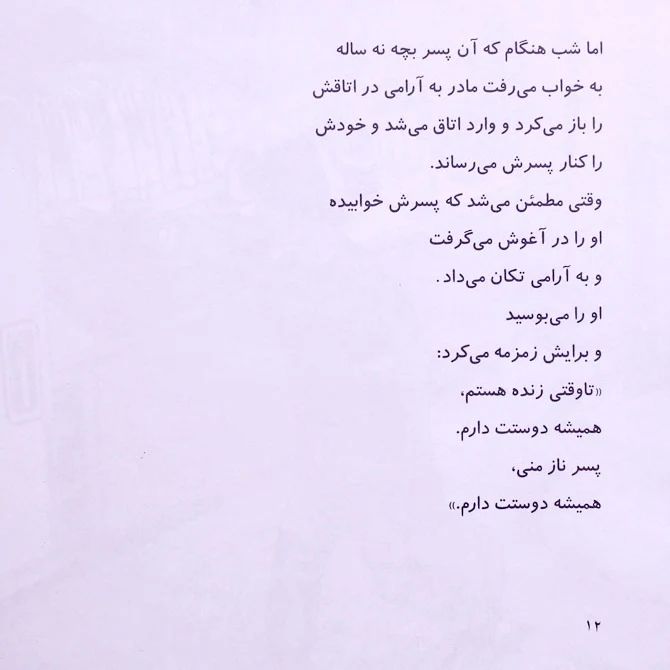 اما شب هنگام که آن پسر بچه نه ساله
به خواب می‌رفت مادر به آرامی در اتاقش
را باز می‌کرد و وارد اتاق می‌شد و خودش
را کنار پسرش می‌رساند.
وقتی مطمئن می‌شد که پسرش خوابیده
او را در آغوش می‌گرفت
و به آرامی تکان می‌داد.
او را می‌بوسید
و برایش زمزمه می‌کرد:
«تاوقتی زنده هستم،
همیشه دوستت دارم.
پسر ناز منی،
همیشه دوستت دارم.»
۱۲